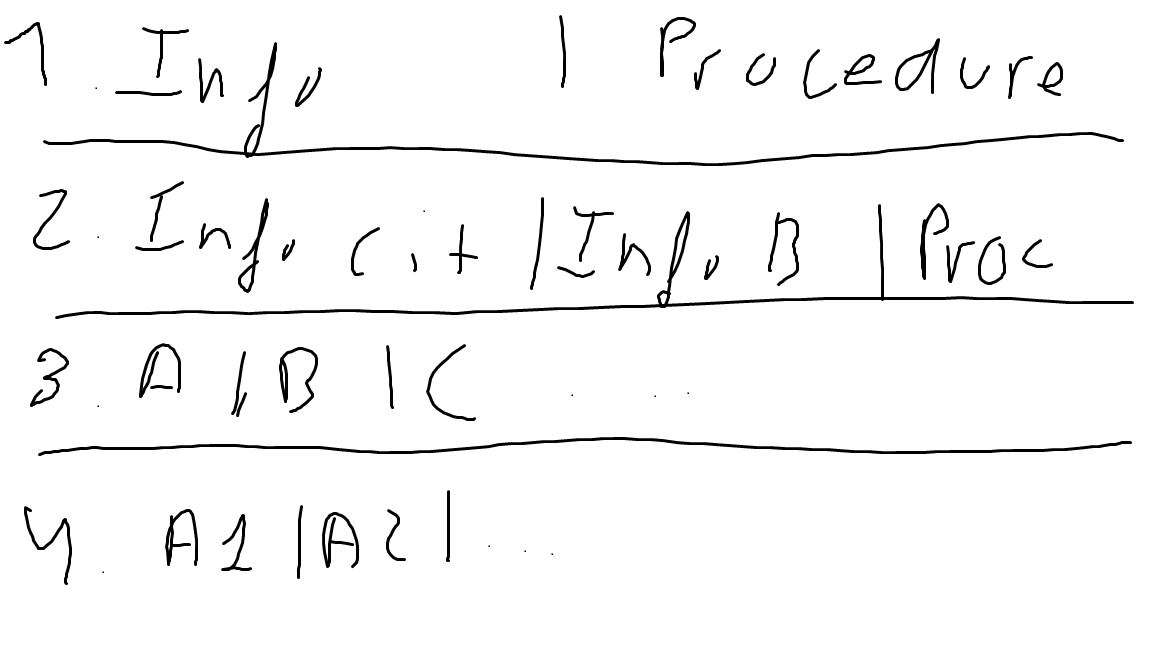 1. Info | Procedure
2. Info Cit | Info B | Proc
3. A | B | C ...
4. A1 | A2 | ...